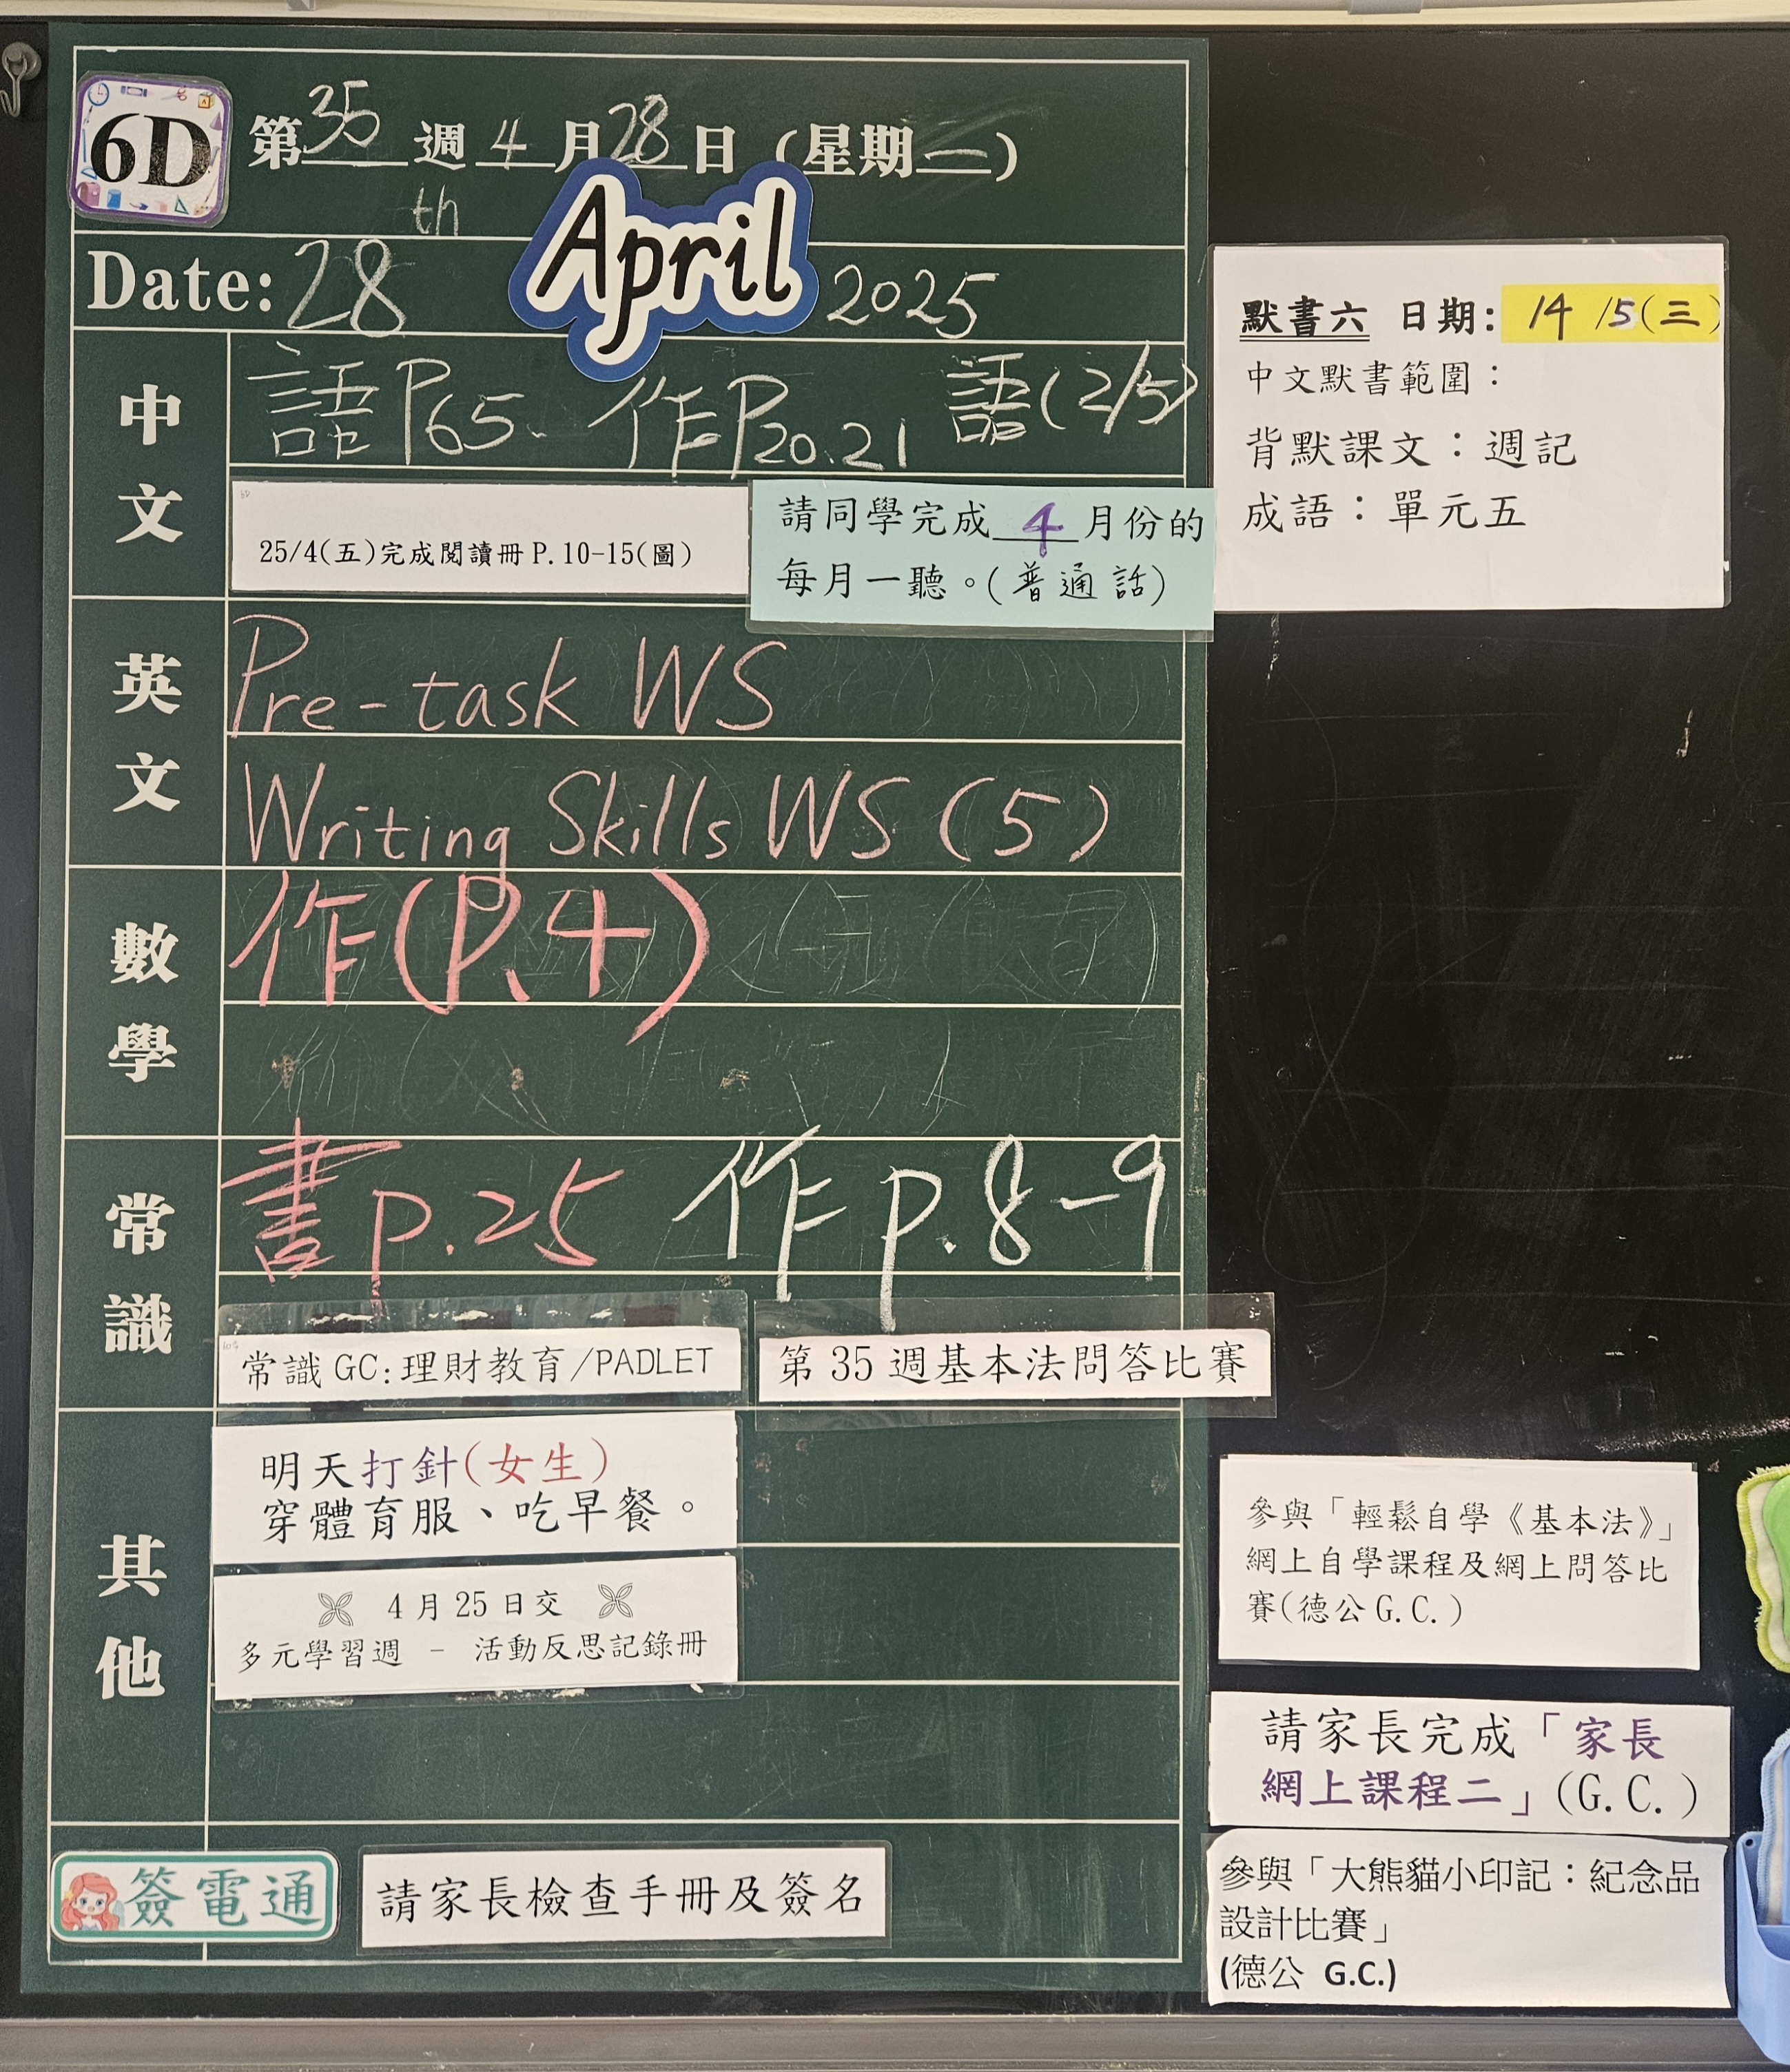 6D
第35週4月28日 (星期一)
Date: 28th April 2025
中文
語P65. 作P20.21 語(2/5)
25/4(五)完成閱讀冊P.10-15(圖)
請同學完成 4 月份的
每月一聽。(普通話)
英文
Pre-task WS
Writing Skills WS (5)
數學
作(P.4)
常識
書p.25 作p.8-9
常識GC:理財教育/PADLET
第 35 週基本法問答比賽
其他
明天打針(女生)
穿體育服、吃早餐。
4月25日交
多元學習週 - 活動反思記錄冊
簽電通
請家長檢查手冊及簽名
默書六 日期: 14/5(三)
中文默書範圍：
背默課文：週記
成語：單元五
參與「輕鬆自學《基本法》」
網上自學課程及網上問答比
賽(德公G.C.)
請家長完成「家長
網上課程二」(G.C.)
參與「大熊貓小印記：紀念品
設計比賽」
(德公 G.C.)